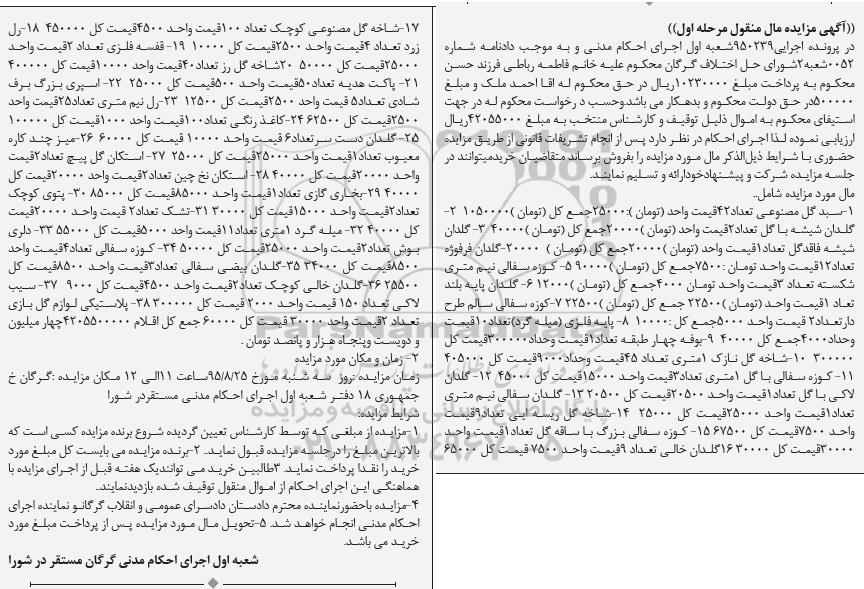 ((آگهی مزایده مال منقول مرحله اول))
در پرونده اجرایی۹۵۰۲۳۹شعبه اول اجرای احکام مدنی و به موجب دادنامه شماره
۰۰۵۲شعبه۲شورای حل اختلاف گرگان محکوم علیه خانم فاطمه رباطی فرزند حسن
محکوم به پرداخت مبلغ ۱۰۲۳۰۰۰۰ریال در حق محکوم له اقا احمد ملک و مبلغ
۵۰۰۰۰۰در حق دولت محکوم و بدهکار می باشد.وحسب د رخواست محکوم له در جهت
استیفای محکوم به اموال ذلیل توقیف و کارشناس منتخب به مبلغ ۴۲۰۵۵۰۰۰ریال
ارزیابی نموده لذا اجرای احکام در نظر دارد پس از انجام تشریفات قانونی از طریق مزایده
حضوری با شرایط ذیل‌الذکر مال مورد مزایده را بفروش برساند متقاضیان خریدمیتوانند در
جلسه مزایده شرکت و پیشنهادخودارائه و تسلیم نمایند.
مال مورد مزایده شامل..
۱-سبد گل مصنوعی تعداد۴۲قیمت واحد (تومان ):۲۵۰۰۰جمع کل (تومان )۱۰۵۰۰۰۰ ۲-
گلدان شیشه با گل تعداد۲قیمت واحد (تومان )۲۰۰۰۰جمع کل (تومان )۴۰۰۰۰ ۳- گلدان
شیشه فاقدگل تعداد۱قیمت واحد (تومان )۲۰۰۰۰جمع کل (تومان ) ۲۰۰۰۰-گلدان فرفوژه
تعداد۱۲قیمت واحد تومان :۷۵۰۰جمع کل (تومان )۹۰۰۰۰ ۵- کوزه سفالی نیم متری
شکسته تعداد ۳قیمت واحد تومان ۴۰۰۰جمع کل (تومان )۱۲۰۰۰ ۶- گلدان پایه بلند
تعاد ۱قیمت واحد (تومان )۲۲۵۰۰ جمع کل (تومان )۲۲۵۰۰ ۷-کوزه سفالی سالم طرح
دارتعداد۲ قیمت واحد ۵۰۰۰جمع کل :۱۰۰۰۰ ۸- پایه فلزی (میله گرد)تعداد۱۰قیمت
وحداد۴۰۰۰جمع کل ۴۰۰۰۰ ۹-بوفه چهار طبقه تعداد۱قیمت وحداد۳۰۰۰۰۰قیمت کل
۳۰۰۰۰۰ ۱۰-شاخه گل نازک ۱متری تعداد ۴۵قیمت وحداد۹۰۰۰قیمت کل ۴۰۵۰۰۰
۱۱- کوزه سفالی با گل ۱متری تعداد۳قیمت واحد ۱۵۰۰۰قیمت کل ۴۵۰۰۰ ۱۲- گلدان
لاکی با گل تعداد۱قیمت واحد ۲۰۵۰۰قیمت کل ۲۰۵۰۰ ۱۳- گلدان سفالی نیم متری
تعداد۱قیمت واحد ۲۵۰۰۰قیمت کل ۲۵۰۰۰ ۱۴-شاخه گل ریسه ایی تعداد۹قیمت
واحد ۷۵۰۰قیمت کل ۶۷۵۰۰ ۱۵- کوزه سفالی بزرگ با ساقه گل تعداد۱قیمت واحد
۳۰۰۰۰قیمت کل ۳۰۰۰۰ ۱۶گلدان خالی تعداد ۹قیمت واحد ۷۵۰۰قیمت کل ۶۵۰۰۰
۱۷-شاخه گل مصنوعی کوچک تعداد ۱۰۰قیمت واحد ۴۵۰۰قیمت کل ۴۵۰۰۰۰ ۱۸-رل
زرد تعداد ۴قیمت واحد ۲۵۰۰قیمت کل ۱۰۰۰۰ ۱۹- قفسه فلزی تعداد ۲قیمت واحد
۲۵۰۰۰قیمت کل ۵۰۰۰۰ ۲۰شاخه گل رز تعداد۴۰قیمت واحد ۱۰۰۰۰قیمت کل ۴۰۰۰۰۰
۲۱- پاکت هدیه تعداد۵۰قیمت واحد ۵۰۰قیمت کل ۲۵۰۰۰ ۲۲- اسپری بزرگ برف
شادی تعداد۵ قیمت واحد ۲۵۰۰قیمت کل ۱۲۵۰۰ ۲۳-رل نیم متری تعداد۲۵قیمت واحد
۲۵۰۰قیمت کل ۶۲۵۰۰ ۲۴-کاغذ رنگی تعداد۱۰۰قیمت واحد ۱۰۰۰قیمت کل ۱۰۰۰۰۰
۲۵- گلدان دست سرتعداد۶ قیمت واحد ۱۰۰۰۰ قیمت کل ۶۰۰۰۰ ۲۶-میز چند کاره
معیوب تعداد۱قیمت واحد ۲۵۰۰۰قیمت کل ۲۵۰۰۰ ۲۷- استکان گل پیچ تعداد۲قیمت
واحد ۲۰۰۰۰قیمت کل ۴۰۰۰۰ ۲۸- استکان نخ چین تعداد۲قیمت واحد ۲۰۰۰۰قیمت کل
۴۰۰۰۰ ۲۹-بخاری گازی تعداد۱قیمت واحد ۸۵۰۰۰قیمت کل ۸۵۰۰۰ ۳۰- پتوی کوچک
تعداد۲قیمت واحد ۱۵۰۰۰قیمت کل ۳۰۰۰۰ ۳۱-تشک تعداد۲ قیمت واحد ۲۰۰۰۰قیمت
کل ۴۰۰۰۰ ۳۲- میله گرد ۱متری تعداد۱۱قیمت واحد ۵۰۰۰قیمت کل ۵۵۰۰۰ ۳۳- دلری
بوش تعداد۲قیمت واحد ۲۵۰۰۰قیمت کل ۵۰۰۰۰ ۳۴- کوزه سفالی تعداد۴قیمت واحد
۸۵۰۰قیمت کل ۳۴۰۰۰ ۳۵-گلدان بیضی سفالی تعداد۳قیمت واحد ۸۵۰۰قیمت کل
۲۵۵۰۰ ۳۶-گلدان خالی کوچک تعداد۲قیمت واحد ۴۵۰۰قیمت کل ۹۰۰۰ ۳۷- سیب
لاکی تعداد ۱۵۰ قیمت واحد ۲۰۰۰ قیمت کل ۳۰۰۰۰۰ ۳۸- پلاستیکی لوازم گل بازی
تعداد ۲قیمت واحد ۳۰۰۰۰ قیمت کل ۶۰۰۰۰ جمع کل اقلام ۴۲۰۵۵۰۰۰۰۰چهار میلیون
و دویست وپنجاه هزار و پانصد تومان .
۲- زمان و مکان مورد مزایده
زمان مزایده :روز سه شنبه مورخ ۹۵/۸/۲۵ساعت ۱۱الی ۱۲ مکان مزایده :گرگان خ
جمهوری ۱۸ دفتر شعبه اول اجرای احکام مدنی مستقردر شورا
شرایط مزایده:
۱-مزایده از مبلغی که توسط کارشناس تعیین گردیده شروع برنده مزایده کسی است که
بالاترین مبلغ را درجلسه مزایده قبول نماید. ۲-برنده مزایده می بایست کل مبلغ مورد
خرید را نقدا پرداخت نماید. ۳طالبین خرید می توانندیک هفته قبل از اجرای مزایده با
هماهنگی این اجرای احکام از اموال منقول توقیف شده بازدیدنمایند.
۴-مزایده باحضورنماینده محترم دادستان دادسرای عمومی و انقلاب گرگانو نماینده اجرای
احکام مدنی انجام خواهد شد. ۵-تحویل مال مورد مزایده پس از پرداخت مبلغ مورد
خرید می باشد.
شعبه اول اجرای احکام مدنی گرگان مستقر در شورا
ParsNamadData